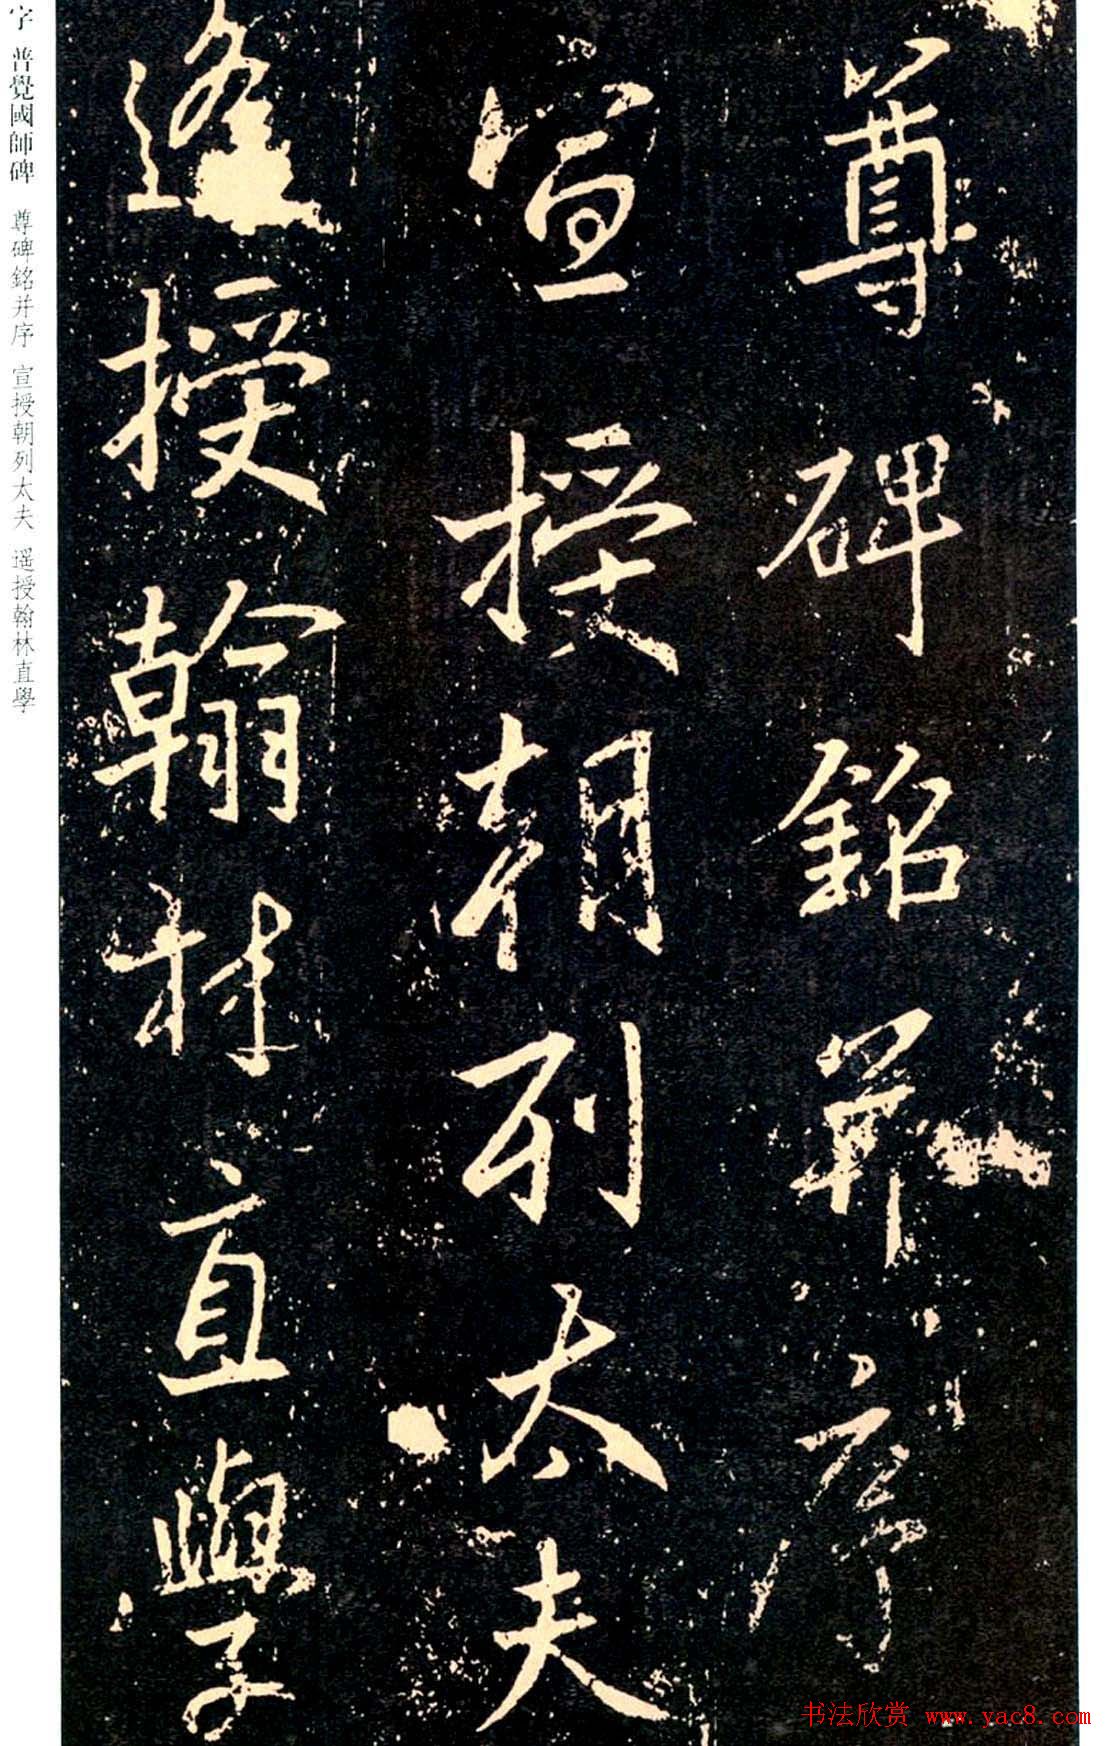 尊碑銘并序
宣授朝列太夫
遥授翰林直學
字 普覺國師碑 尊碑銘并序 宣授朝列太夫 遥授翰林直學
书法欣赏 www.yac8.com